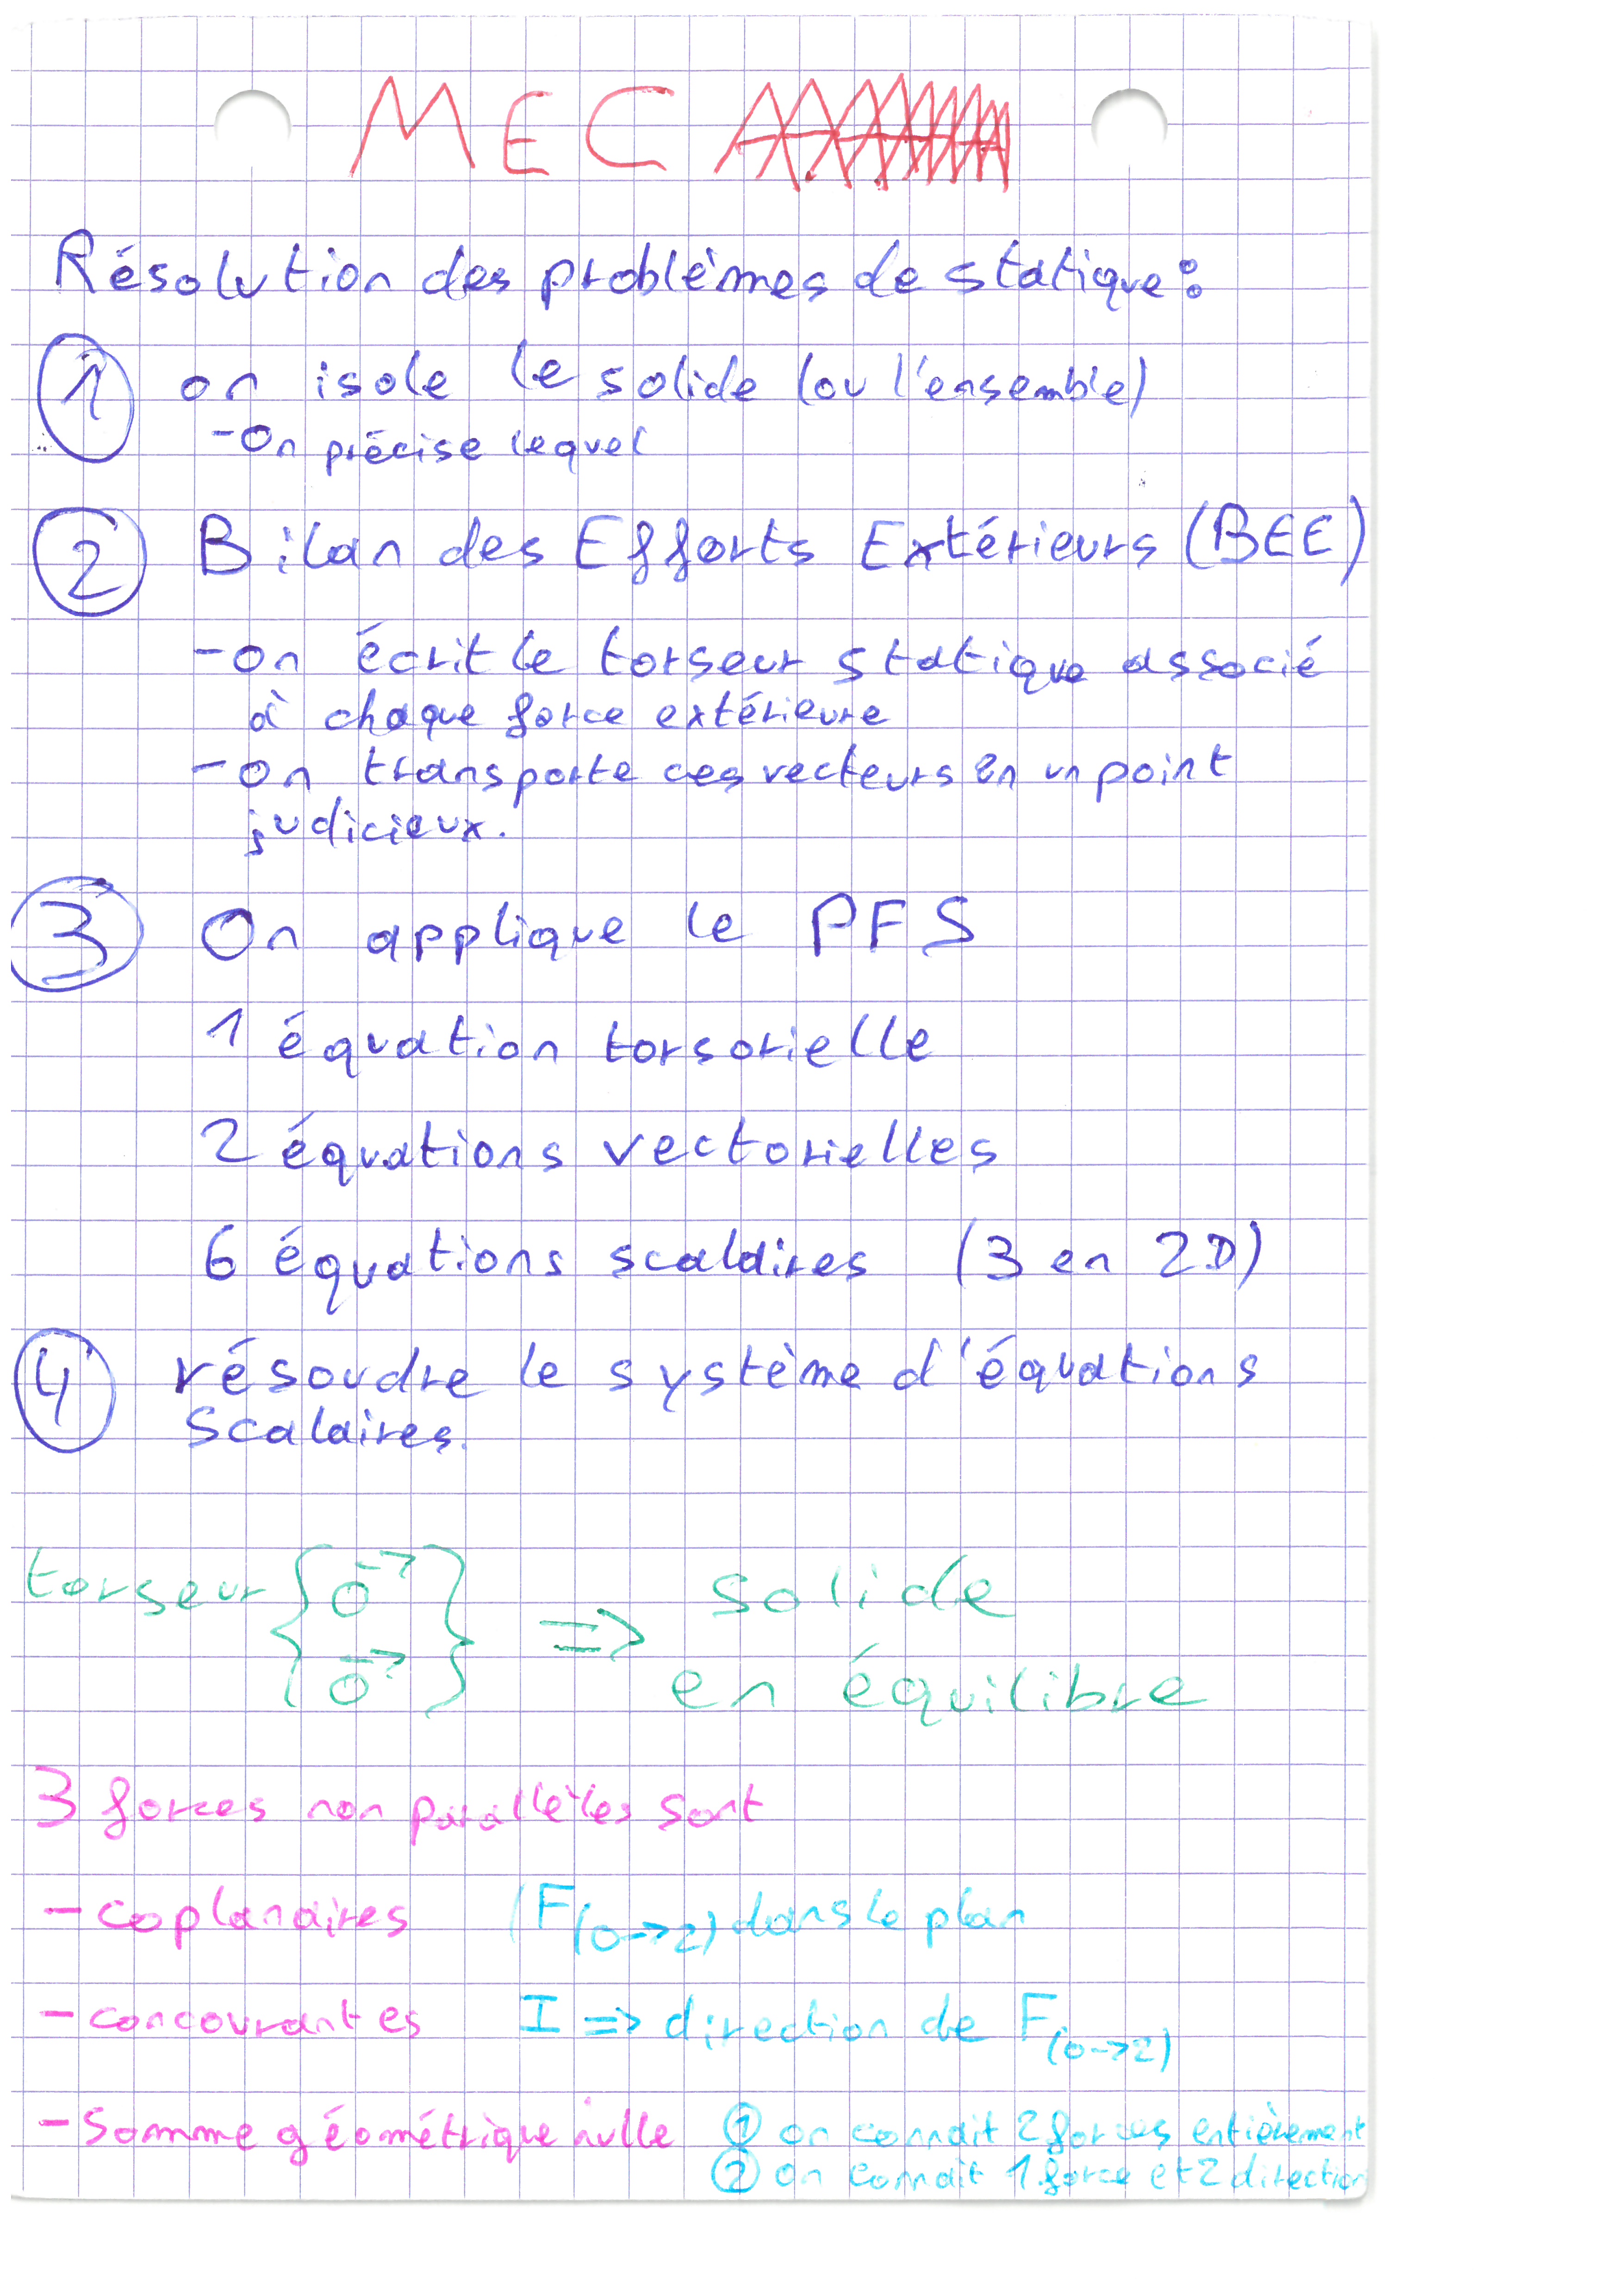 MECA
Résolution des problèmes de statique :
1 on isole le solide (ou l'ensemble)
- On précise lequel
2 Bilan des Efforts Extérieurs (BEE)
- on écrit le torseur statique associé
à chaque force extérieure
- on transporte ces vecteurs en un point
judicieux.
3 On applique le PFS
1 équation torsorielle
2 équations vectorielles
6 équations scalaires (3 en 2D)
4 résoudre le système d'équations
scalaires.
torseur { 0⃗ } => solide
{ 0⃗ } en équilibre
3 forces non parallèles sont
- coplanaires (F(0->2) dans le plan
- concourantes I => direction de F(0->2)
- Somme géométrique nulle 1 on connait 2 forces entièrement
2 on connait 1 force et 2 direction